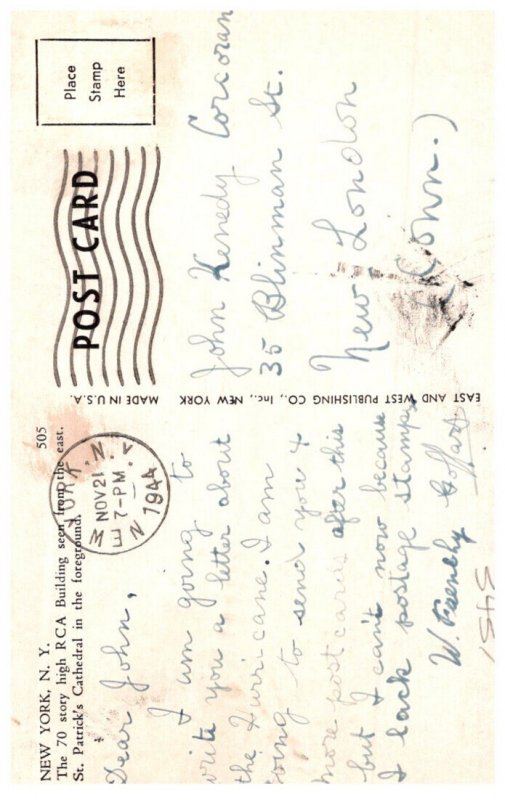 NEW YORK, N. Y. 505
The 70 story high RCA Building seen from the east.
St. Patrick's Cathedral in the foreground.
Dear John,
I am going to
write you a letter about
the Hurricane. I am
going to send you 4
more postcards after this
but I can't now because
I lack postage stamps
W.
EAST AND WEST PUBLISHING CO., Inc., NEW YORK MADE IN U.S.A.
NEW YORK, N.Y.
NOV 21
7-PM
1944
POST CARD
Place
Stamp
Here
John Kenedy Corcoran
35 Blinman St.
New London
(Conn.)